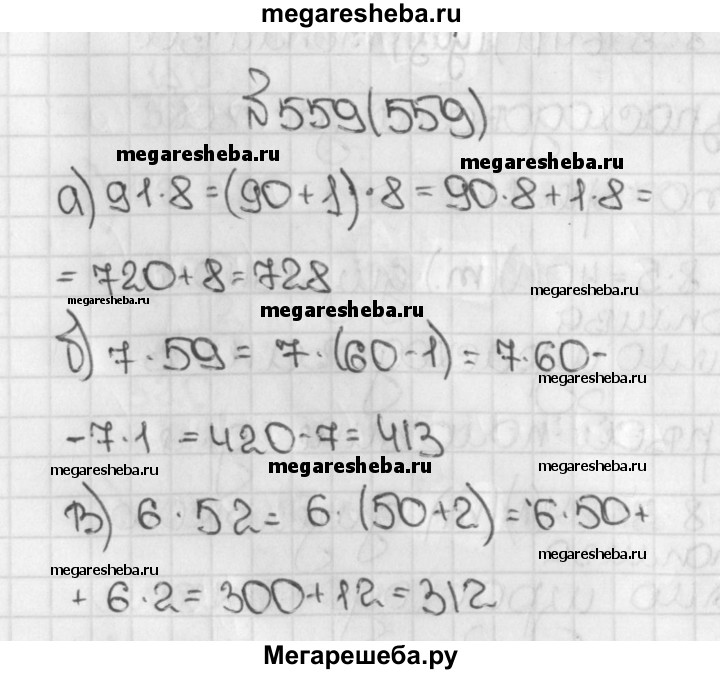 megaresheba.ru
№ 559(559)
megaresheba.ru megaresheba.ru
а) 91·8=(90+1)·8=90·8+1·8=
=720+8=728
megaresheba.ru megaresheba.ru megaresheba.ru
б) 7·59= 7·(60-1)=7·60-
megaresheba.ru
-7·1 =420-7=413
megaresheba.ru megaresheba.ru megaresheba.ru
в) 6·52= 6·(50+2)=6·50+
megaresheba.ru megaresheba.ru
+ 6·2=300+12=312
Мегарешеба.ру